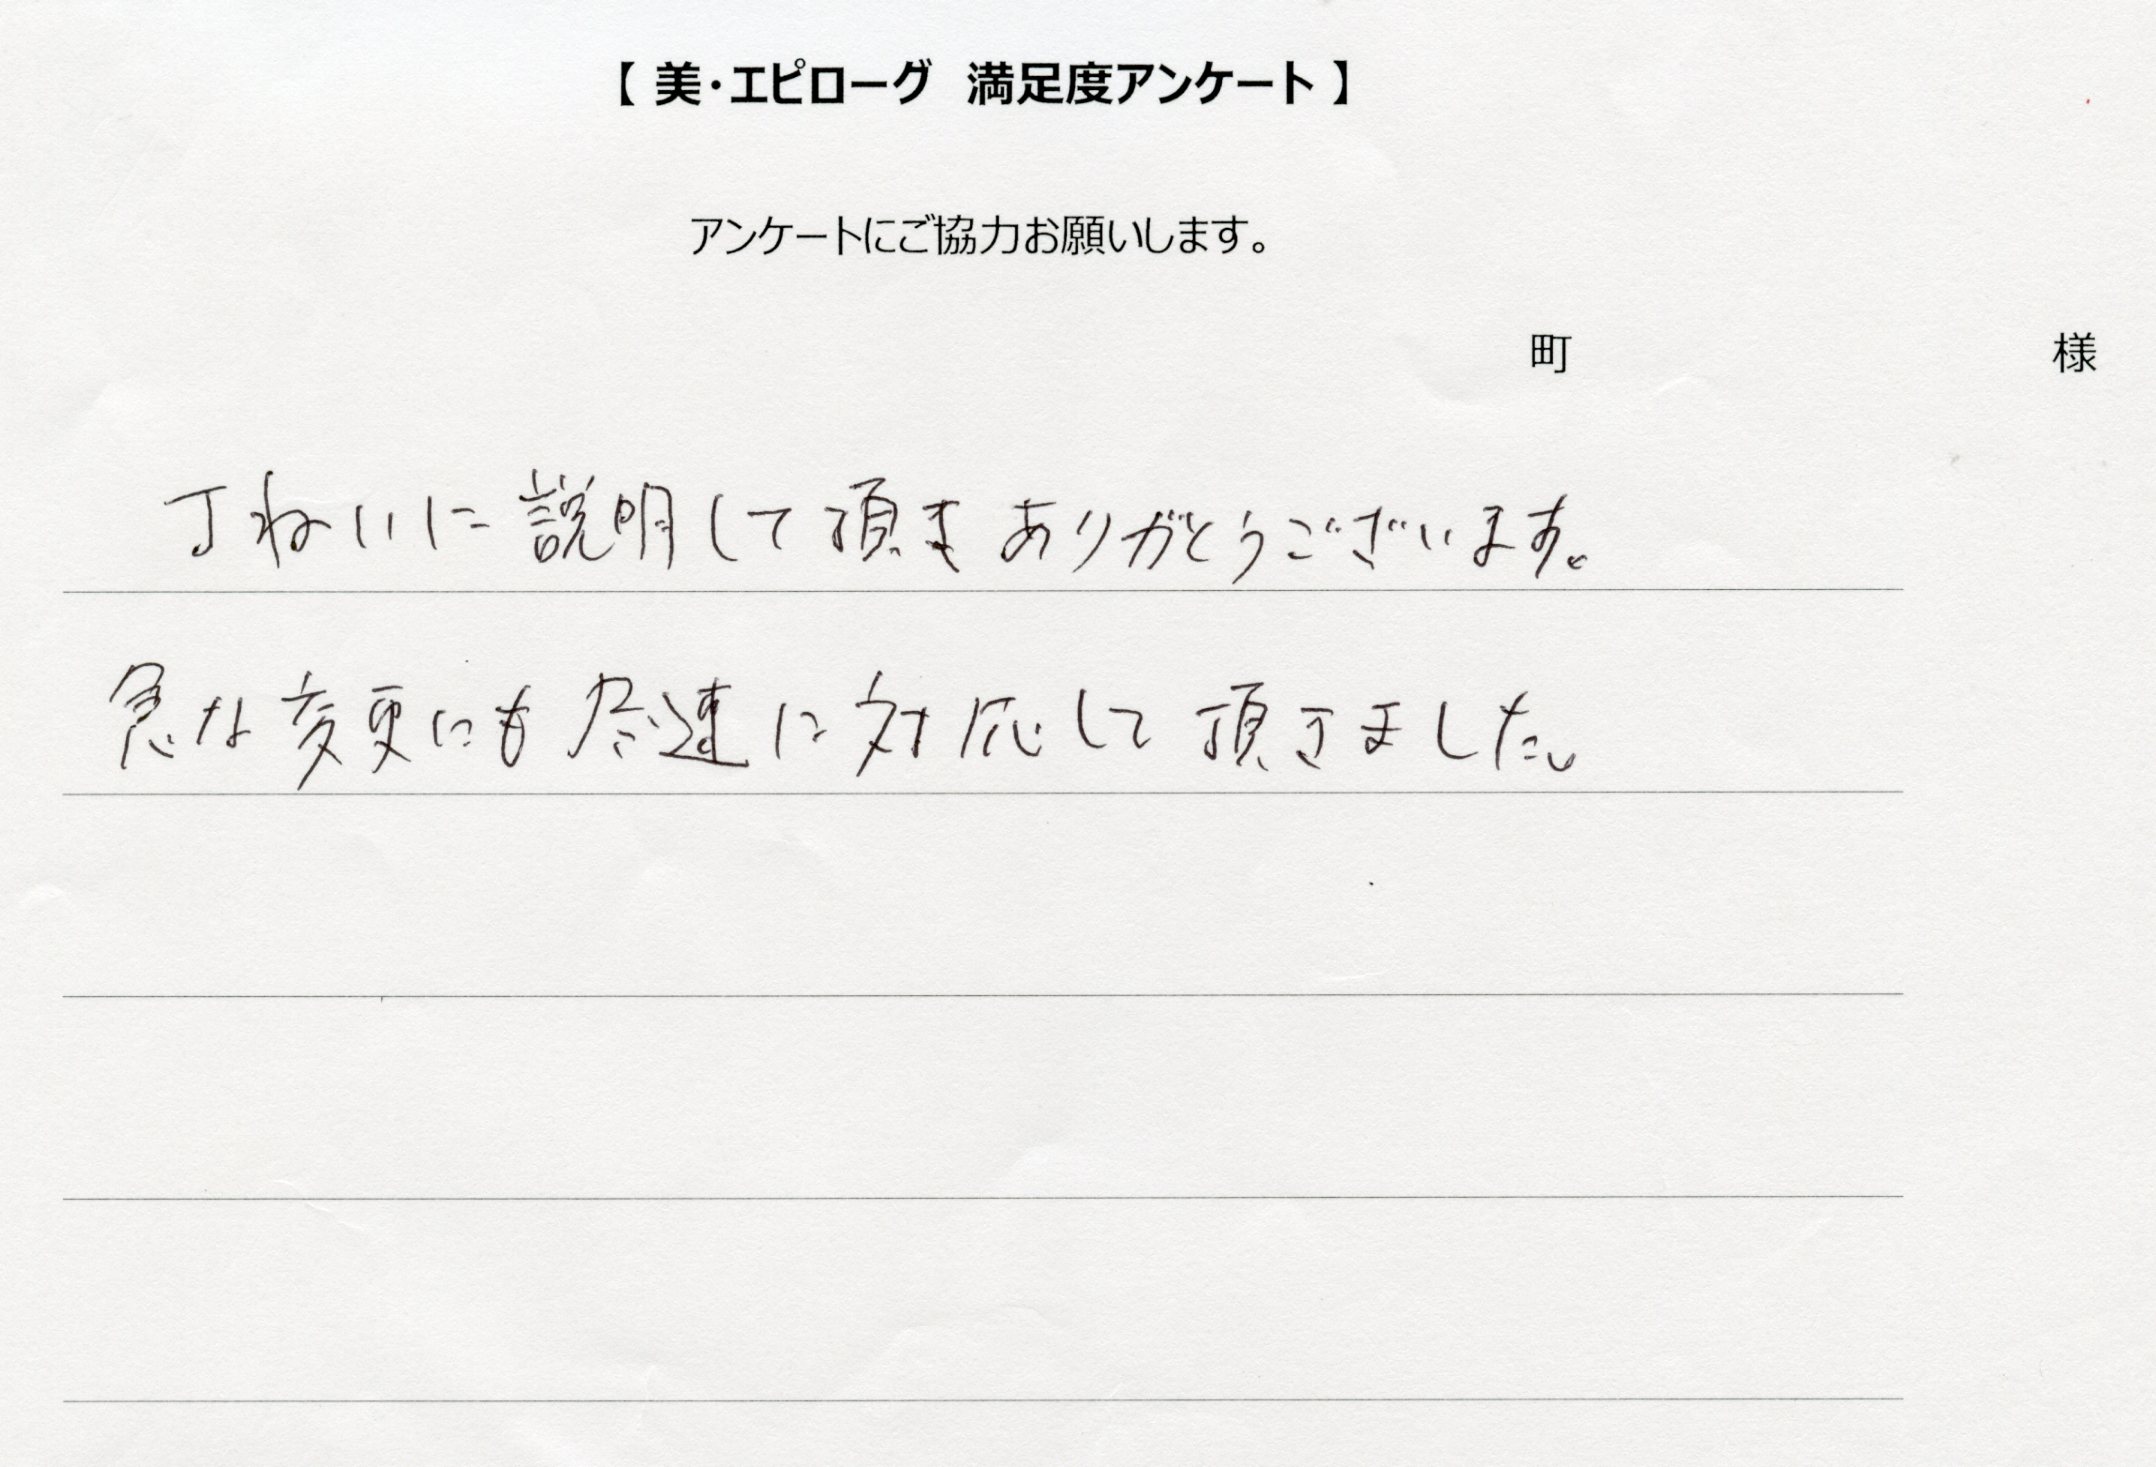 【 美・エピローグ　満足度アンケート 】
アンケートにご協力お願いします。
町　様
丁ねいに説明して頂きありがとうございます。
急な変更にも尽速に対応して頂きました。